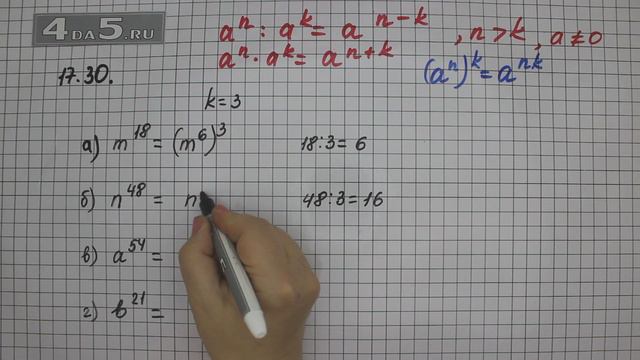 4ДА5.RU
aⁿ : aᵏ = aⁿ⁻ᵏ, n > k, a ≠ 0
17.30.
aⁿ · aᵏ = aⁿ⁺ᵏ
(aⁿ)ᵏ = aⁿᵏ
k = 3
а) m¹⁸ = (m⁶)³ 18 : 3 = 6
б) n⁴⁸ = n 48 : 3 = 16
в) a⁵⁴ =
г) b²¹ =